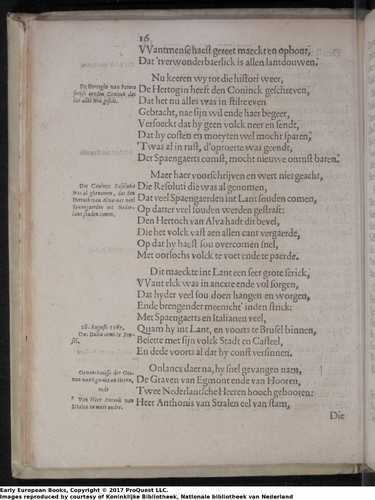 16
VVantmense haest gereet maeckt en opbout,
Dat 'tverwonderbaerlick is allen lantdouwen.
Nu keeren wy tot die histori weer,
De Hertogin heeft den Coninck geschreven,
Dat het nu alles was in stilte even
Gebracht, nae sijn wil ende haer begeer,
Versoeckt dat hy geen volck neer en sendt,
Dat hy costen en moeyten wel mocht sparen,
'Twas al in rust, d'oproerte was geendt,
Der Spaengaerts comst, mocht nieuwe onrust baren.
Maer haer voorschrijven en wert niet geacht,
Die Resoluti die was al genomen,
Dat veel Spaengaerden int Lant souden comen,
Op datter veel souden werden gestraft:
Den Hertoch van Alva hadt dit bevel,
Die het volck vast aen allen cant vergaerde,
Op dat hy haest sou overcomen snel,
Met oorlochs volck te voet ende te paerde.
Dit maeckte int Lant een seer grote schrick,
VVant elck was in ancxte ende vol sorgen,
Dat hyder veel sou doen hangen en worgen,
Ende brengender meenich int inden strick:
Met Spaengaerts en Italianen veel,
Quam hy int Lant, en voorts te Brussel binnen,
Besette met sijn volck Stadt en Casteel,
En dede voorts al dat hy const versinnen.
Onlancx daerna, hy snel gevangen nam,
De Graven van Egmont ende van Hooren,
Twee Nederlantsche Heeren hooch gebooren:
Heer Anthonis van Stralen eel van stam,
Die
De Hertogin van Parma
schrijft aenden Coninck dat
het alles was gestilt.
Die Coninx Resolutie
was al genomen, dat den
Hertoch van Alva met veel
Spaengaerden int Neder-
lant souden comen.
28. Augusti 1567.
Duc Dalba comt te Brus-
sel.
Gevanckenisse der Gra-
ven van Egmont en Hooren,
ende
Van Heer Antonis van
Stralen en meer andre.
Early European Books, Copyright © 2017 ProQuest LLC.
Images reproduced by courtesy of Koninklijke Bibliotheek, Nationale bibliotheek van Nederland